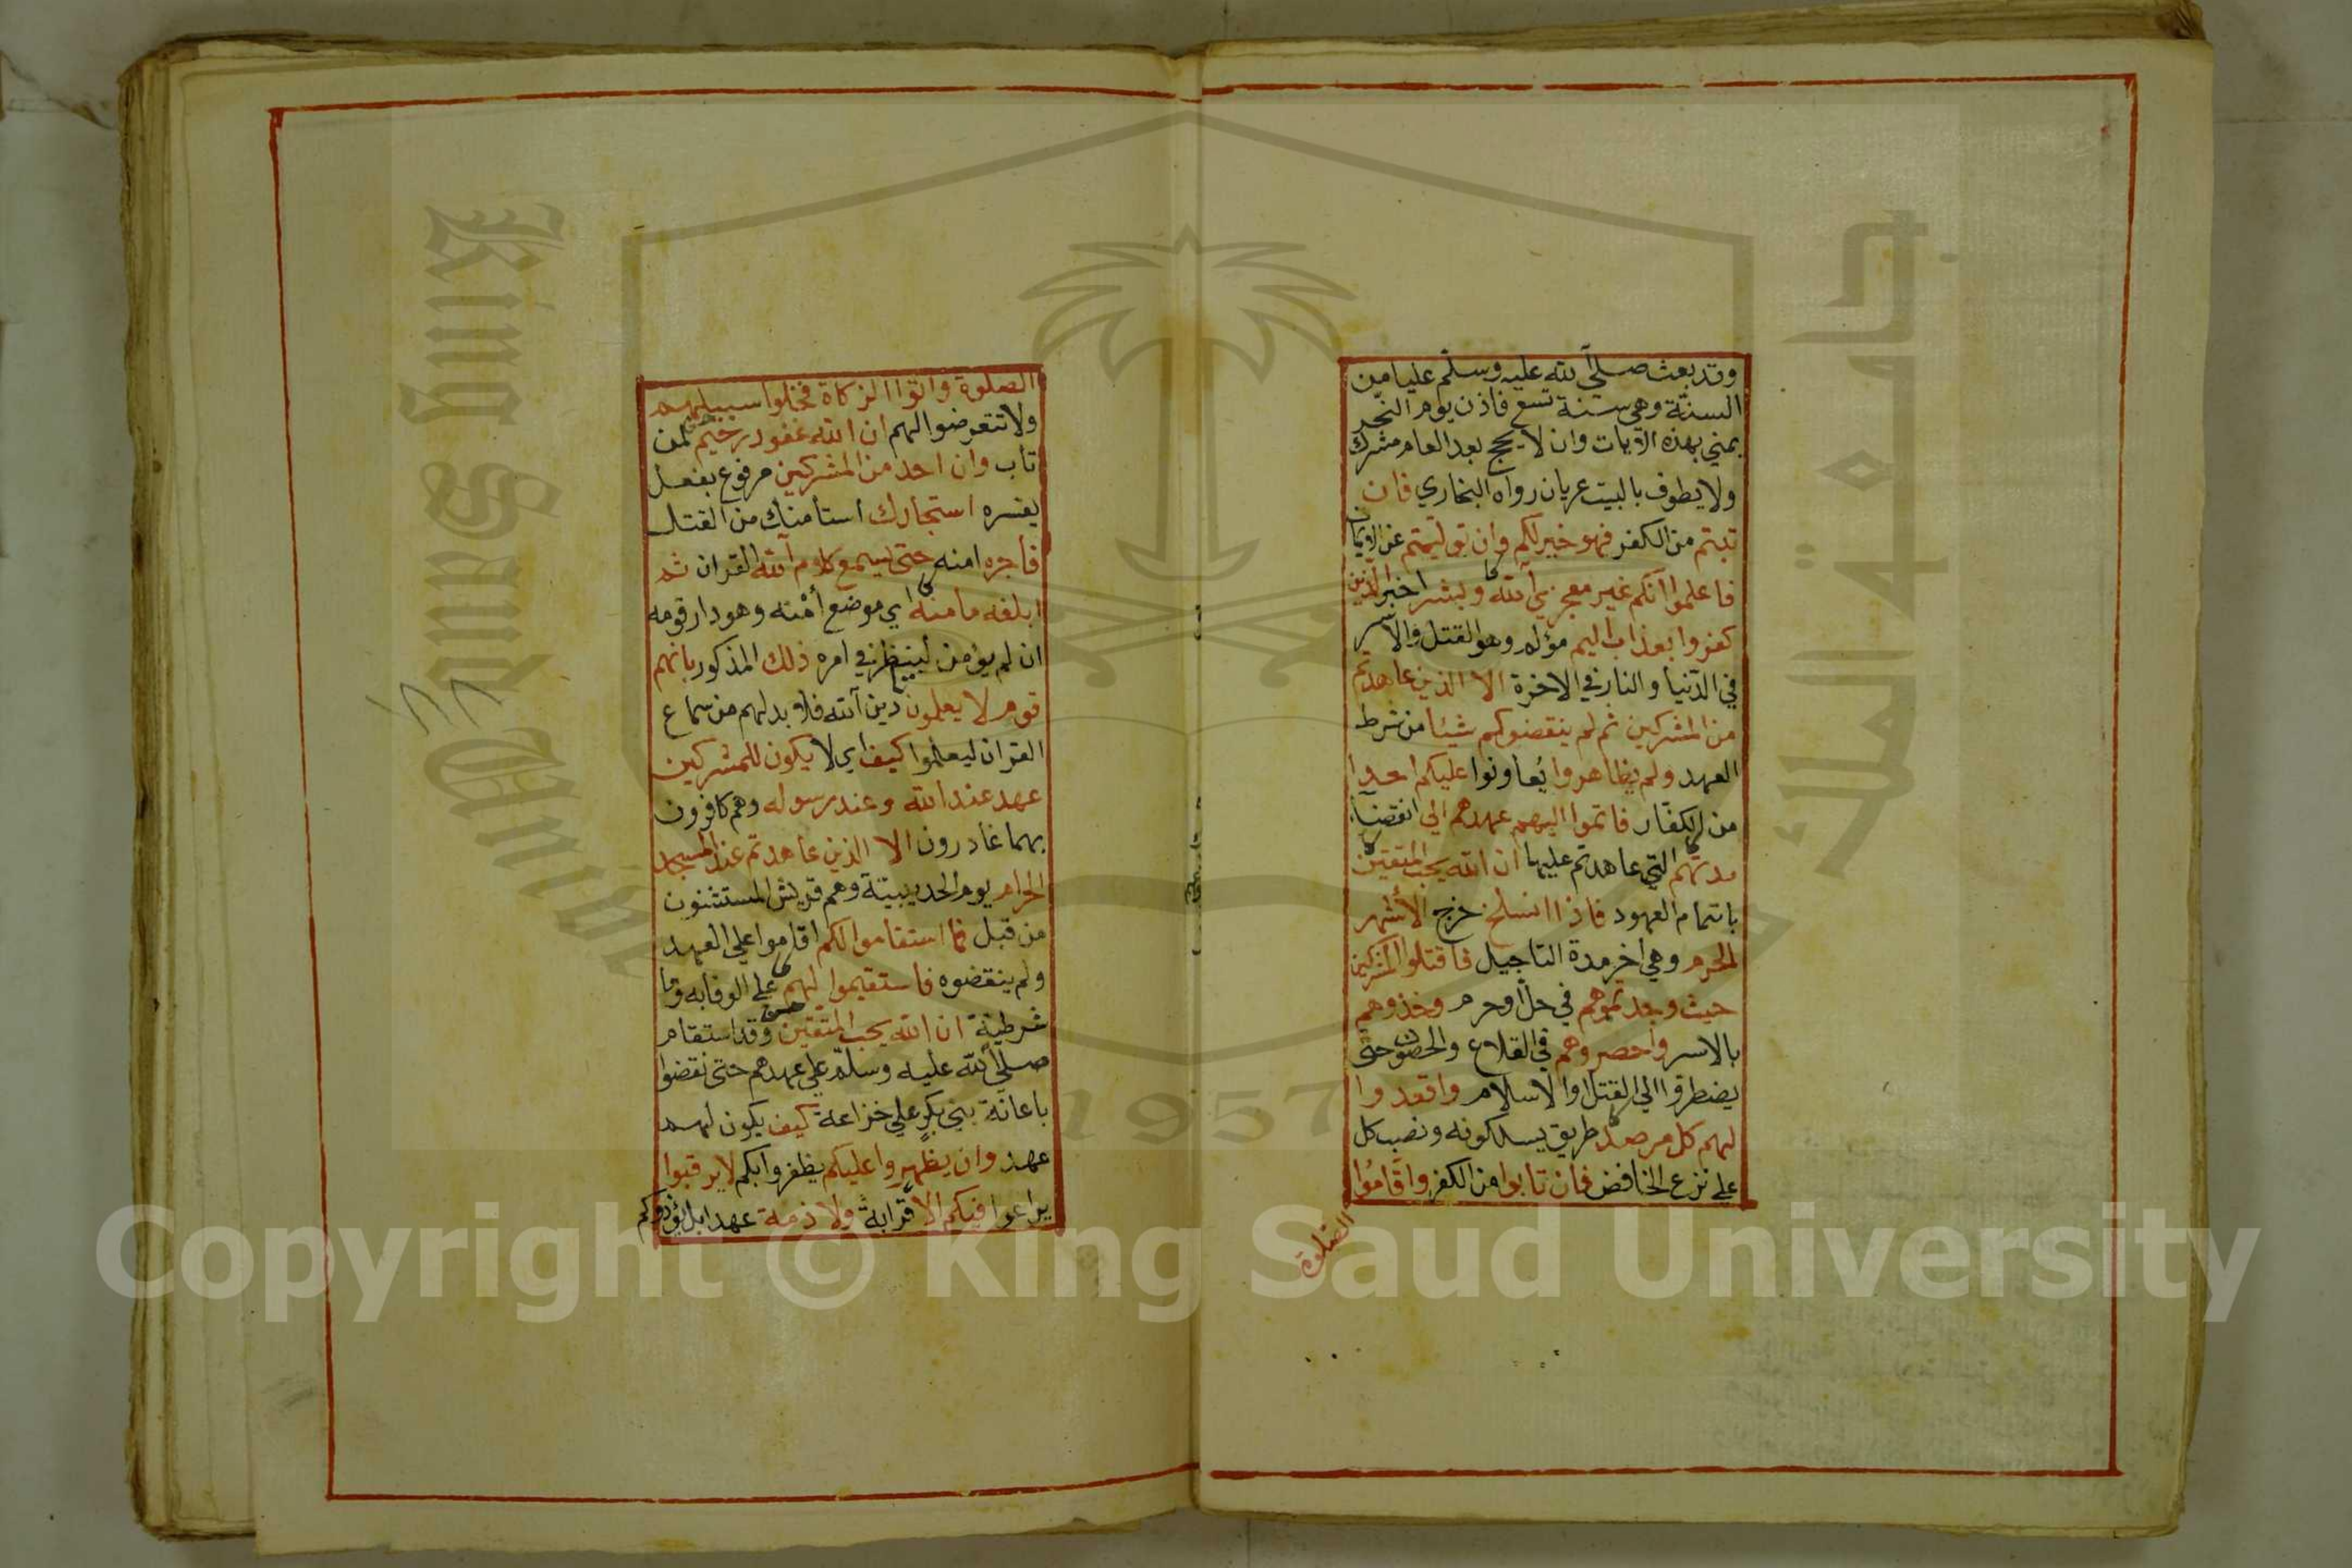 وقد بعث صلي الله عليه وسلم عليا من
السنة وهي سنة تسع فاذن يوم النحر
بمني بهذه الآيات وان لا يحج بعد العام مشرك
ولا يطوف بالبيت عريان رواه البخاري فان
تبتم من الكفر فهو خير لكم وان توليتم عن الايمان
فاعلموا انكم غير معجزي الله وبشر اخبر الذين
كفروا بعذاب اليم مؤلم وهو القتل والاسر
في الدنيا والنار في الاخرة الا الذين عاهدتم
من المشركين ثم لم ينقضوكم شيئا من شرط
العهد ولم يظاهروا يُعاونوا عليكم احدا
من الكفار فاتموا اليهم عهدهم الي انقضاء
مدتهم التي عاهدتم عليها ان الله يحب المتقين
باتمام العهود فاذا انسلخ خرج الأشهر
الحرم وهي اخر مدة التاجيل فاقتلوا المشركين
حيث وجدتموهم في حل أوحرم وخذوهم
بالاسر واحصروهم في القلاع والحصون حتى
يضطروا الي القتل اوالاسلام واقعدوا
لهم كل مرصد طريق يسلكونه ونصب كل
علي نزع الخافض فان تابوا من الكفر واقامُوا
الصلوة
الصلوة واتوا الزكاة فخلوا سبيلهم
ولا تتعرضوا لهم ان الله غفور رحيم لمن
تاب وان احد من المشركين مرفوع بفعل
يفسره استجارك استأمنك من القتل
فأجره امنه حتى يسمع كلام الله القران ثم
ابلغه مامنه اي موضع أمْنه وهو دار قومه
ان لم يؤمن لينظر في امره ذلك المذكور بانهم
قوم لا يعلمون دين الله فلا بد لهم من سماع
القران ليعلموا كيف اي لا يكون للمشركين
عهد عند الله وعند رسوله وهم كافرون
بهما غادرون الا الذين عاهدتم عند المسجد
الحرام يوم الحديبية وهم قريش المستثنون
من قبل فما استقاموا لكم اقاموا علي العهد
ولم ينقضوه فاستقيموا لهم علي الوفا به وما
شرطية ان الله يحب المتقين وقد استقام
صلي الله عليه وسلم علي عهدهم حتى نقضوا
باعانة بني بكرٍ علي خزاعة كيف يكون لهم
عهد وان يظهروا عليكم يظفروا بكم لا يرقبوا
يراعوا فيكم الا قرابة ولا ذمة عهدا بل يؤذوكم
King Saud University
جامعة الملك
1957
Copyright © King Saud University